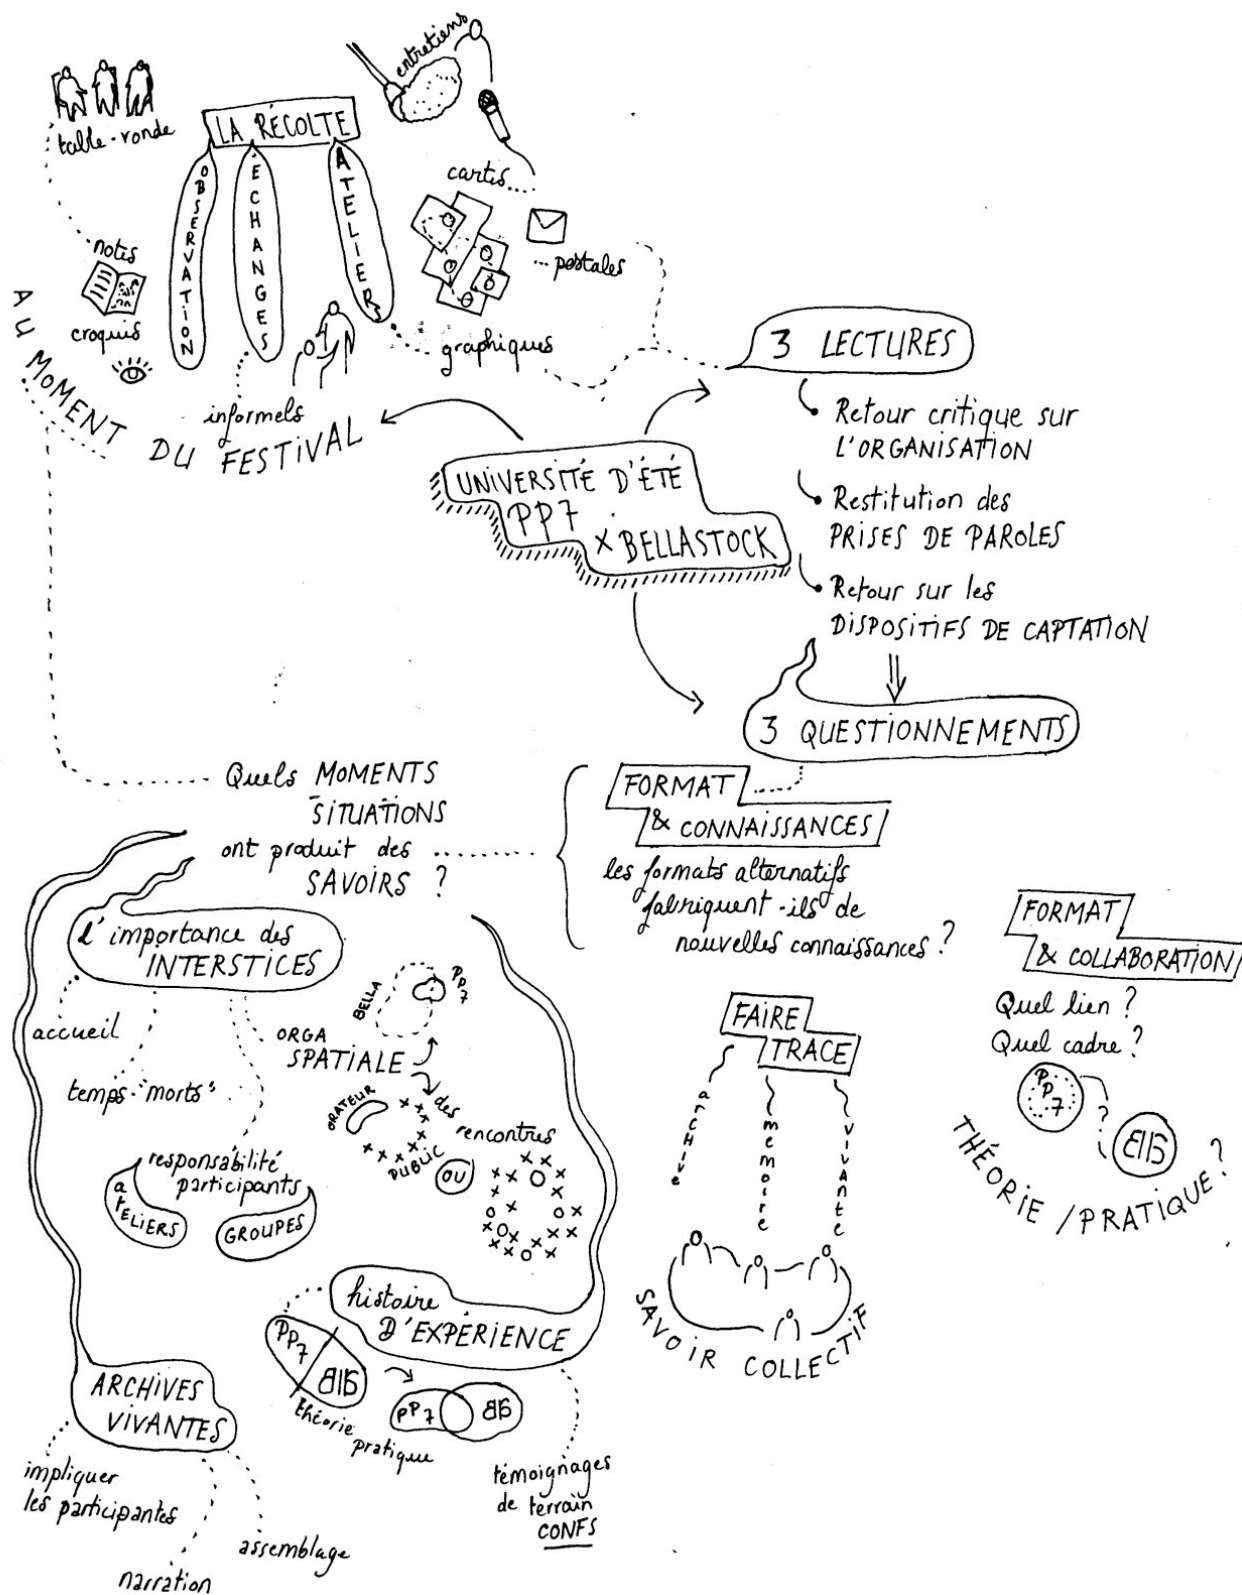 entretiens
table-ronde
LA RÉCOLTE
OBSERVATION
ÉCHANGES
ATELIERS
cartes....
... postales
notes
croquis
graphiques
informels
AU MOMENT DU FESTIVAL
3 LECTURES
Retour critique sur
L'ORGANISATION
Restitution des
PRISES DE PAROLES
Retour sur les
DISPOSITIFS DE CAPTATION
UNIVERSITÉ D'ÉTÉ
PP7
x BELLASTOCK
3 QUESTIONNEMENTS
Quels MOMENTS
SITUATIONS
ont produit des
SAVOIRS ?
FORMAT
& CONNAISSANCES
les formats alternatifs
fabriquent-ils de
nouvelles connaissances ?
FORMAT
& COLLABORATION
Quel lien ?
Quel cadre ?
PP7
?
THÉORIE / PRATIQUE ?
FAIRE
TRACE
ARCHIVE
MEMOIRE
VIVANTE
SAVOIR COLLECTIF
l'importance des
INTERSTICES
accueil
temps "morts"
responsabilité
participants
ATELIERS
GROUPES
ORGA
SPATIALE
BELLA
PP7
des
rencontres
ORATEUR
PUBLIC
OU
histoire
D'EXPÉRIENCE
PP7
théorie
pratique
PP7
témoignages
de terrain
CONFS
ARCHIVES
VIVANTES
impliquer
les participantes
narration
assemblage